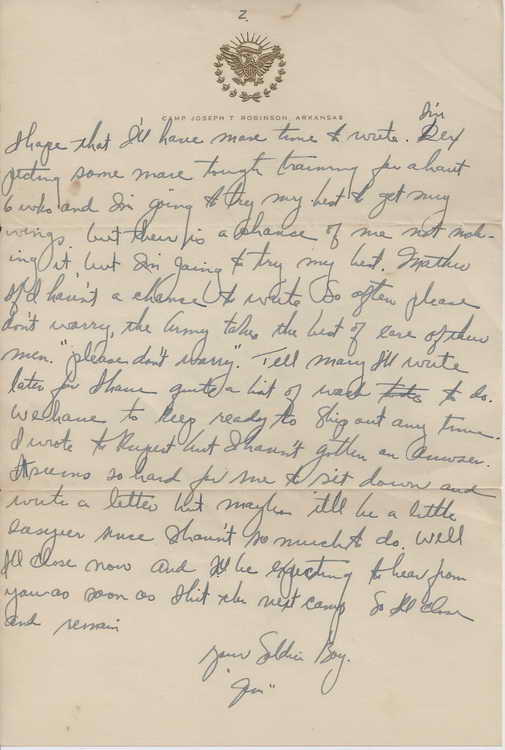 2.
CAMP JOSEPH T. ROBINSON, ARKANSAS
I hope that I'll have more time to write. I'm
pecting some more tough training for about
6 wks and I'm going to try my best to get my
wings but there is a chance of me not mak-
ing it, but I'm going to try my best. Mother
if I haven't a chance to write so often please
don't worry, the Army takes the best of care of their
men. "please don't worry". Tell Mary I'll write
later for I have quite a bit of work to do.
We have to keep ready to ship out any time.
I wrote to Rupert but I haven't gotten an answer.
It seems so hard for me to sit down and
write a letter but maybe it'll be a little
easyier since I haven't so much to do. Well
I'll close now and I'll be expecting to hear from
you as soon as I hit the next camp So I'll close
and remain
your Soldier Boy.
"Jim"